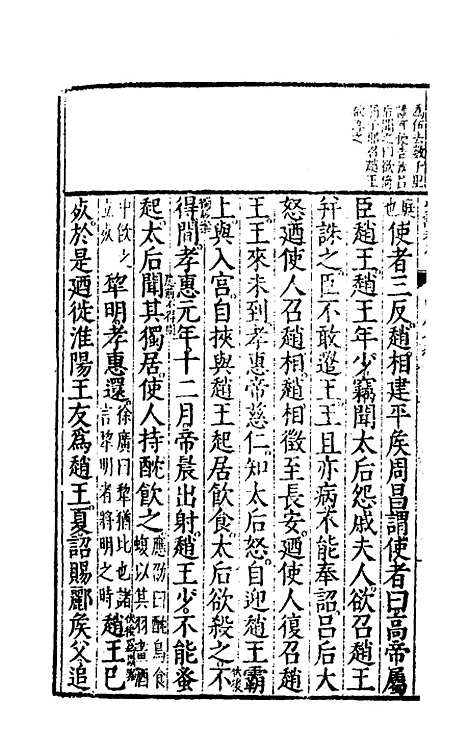 后聞之曰欲倚
召趙王
欲誅之
使者三反趙相建平矦周昌謂使者曰高帝屬
臣趙王趙王年少竊聞太后怨戚夫人欲召趙王
幷誅之臣不敢遣王王且亦病不能奉詔吕后大
怒廼使人召趙相趙相徵至長安廼使人復召趙
王王來未到孝惠帝慈仁知太后怒自迎趙王霸
上與入宮自挾與趙王起居飲食太后欲殺之不
得閒孝惠元年十二月帝晨出射趙王少不能蚤
起太后聞其獨居使人持酖飲之應劭曰酖鳥食蝮以其羽畫酒
中飲之立死犂明孝惠還徐廣曰犂猶比也諸言犂明者將明之時趙王已
死於是廼徙淮陽王友爲趙王夏詔賜酈矦父追